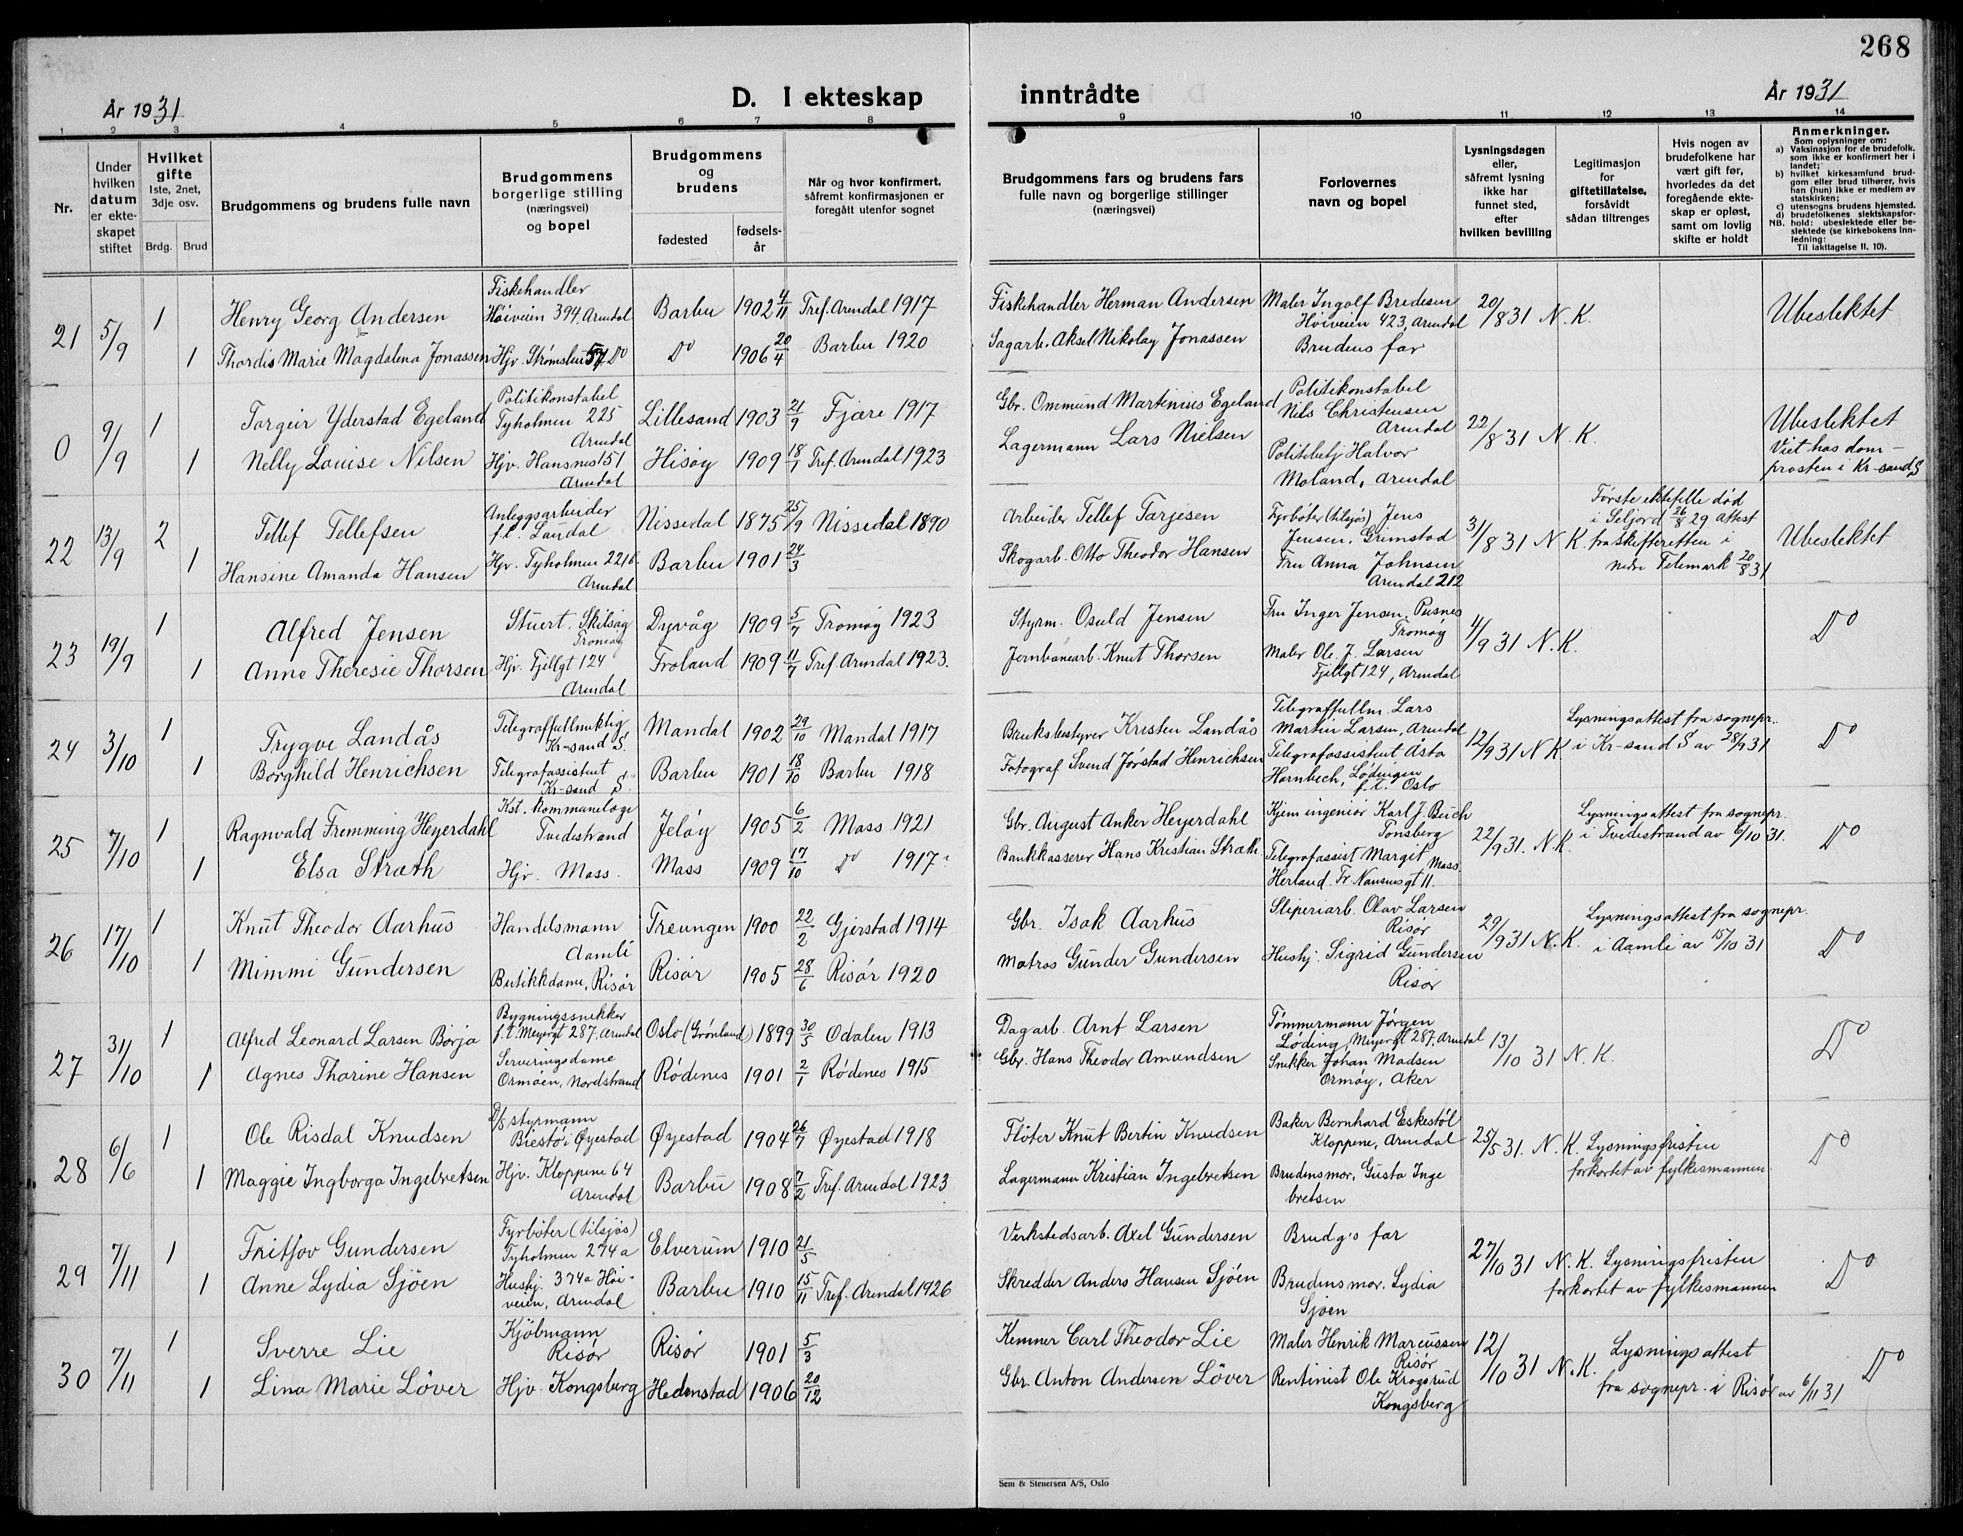 268
År 1931
D. I ekteskap inntrådte
År 1931
1 2 3 4 5 6 7 8 9 10 11 12 13 14
Nr.
Under hvilken datum er ekteskapet stiftet
Hvilket gifte
1ste, 2net, 3dje osv.
Brdg. Brud
Brudgommens og brudens fulle navn
Brudgommens borgerlige stilling (næringsvei) og bopel
Brudgommens og brudens
fødested
fødselsår
Når og hvor konfirmert, såfremt konfirmasjonen er foregått utenfor sognet
Brudgommens fars og brudens fars fulle navn og borgerlige stillinger (næringsvei)
Forlovernes navn og bopel
Lysningsdagen eller, såfremt lysning ikke har funnet sted, efter hvilken bevilling
Legitimasjon for giftetillatelse, forsåvidt sådan tiltrenges
Hvis nogen av brudefolkene har vært gift før, hvorledes da det foregående ekteskap er opløst, samt om lovlig skifte er holdt
Anmerkninger.
Som oplysninger om:
a) Vaksinasjon for de brudefolk, som ikke er konfirmert her i landet;
b) hvilket kirkesamfund brudgom eller brud tilhører, hvis han (hun) ikke er medlem av statskirken;
c) utensogns brudens hjemsted.
d) brudefolkenes slektskapsforhold: ubeslektede eller beslektede (se kirkebokens innledning:
NB. Til iakttagelse II. 10).
21 5/9 1 Henry Georg Andersen Fiskehandler Høiveien 394, Arendal Barbu 1902 4/11 Tref. Arendal 1917 Fiskehandler Herman Andersen Maler Ingolf Bredesen Høiveien 423, Arendal 20/8 31 N. K. Ubeslektet
1 Thordis Marie Magdalena Jonassen Hjv. Strømsbu 571 Do Do 1906 20/4 Barbu 1920 Sagarb. Aksel Nikolay Jonassen Brudens far
0 9/9 1 Torgeir Yderstad Egeland Politikonstabel Tyholmen 225 Arendal Lillesand 1903 21/9 Fjære 1917 Gbr. Ommund Martinius Egeland Politikonstabel Nils Christensen Arendal 22/8 31 N. K. Ubeslektet
1 Nelly Louise Nilsen Hjv. Hansnes 151 Arendal Hisøy 1909 18/1 Tref. Arendal 1923 Lagermann Lars Nielsen Politibetj Halvor Moland, Arendal Viet hos domprosten i Kr-sand S
22 13/9 2 Tellef Tellefsen Anleggsarbeider f.t. Landal Nissedal 1875 25/9 Nissedal 1890 Arbeider Tellef Tarjesen Fyrbøter (tilsjøs) Jens Jensen, Grimstad 31/8 31 N. K. Første ektefelle død i Seljord 26/8 29 attest fra skifteretten i nedre Telemark 20/8 31 Ubeslektet
1 Hansine Amanda Hansen Hjv. Tyholmen 221b. Arendal Barbu 1901 24/3 Skogarb. Otto Theodor Hansen Fru Anna Johnsen Arendal 212
23 19/9 1 Alfred Jensen Stuert. Skilsøy Tromøy Dypvåg 1909 5/7 Tromøy 1923 Styrm. Osuld Jensen Fru Inger Jensen, Pusnes Tromøy 4/9 31 N. K. Do
1 Anne Theresie Thorsen Hjv. Fjellgt 124 Arendal Froland 1909 11/7 Tref. Arendal 1923. Jernbanearb. Knut Thorsen Maler Ole J. Larsen Fjellgt 124, Arendal
24 3/10 1 Trygve Landås Telegraffullmektig Kr-sand S. Mandal 1902 29/10 Mandal 1917 Bruksbestyrer Kristen Landås Telegraffullm. Lars Martin Larsen, Arendal 12/9 31 N. K. Lysningsattest fra sognepr. i Kr-sand S av 28/9 31 Do
1 Borghild Henrichsen Telegrafassistent Kr-sand S. Barbu 1901 18/10 Barbu 1918 Fotograf Svend Jørstad Henrichsen Telegrafassistent Åsta Hornbech, Lødingen f.t. Oslo
25 7/10 1 Ragnvald Fremming Heyerdahl Kst. kommunelæge Tvedestrand Jeløy 1905 6/2 Moss 1921 Gbr. August Anker Heyerdahl Kjem ingeniør Karl J. Buch Tønsberg 22/9 31. N. K. Lysningsattest fra sognepr. i Tvedestrand av 6/10 31. Do
1 Elsa Stræth Hjv. Moss. Moss 1909 17/10 Do 1917. Bankkasserer Hans Kristian Stræth. Telegrafassist Margit Herland. Fr. Nansensgt 11. Moss.
26 17/10 1 Knut Theodor Aarhus Handelsmann Aamli Treungen 1900 22/2 Gjerstad 1914 Gbr. Isak Aarhus Sliperiarb. Olav Larsen Risør 29/9 31 N. K. Lysningsattest fra sognepr. i Aamli av 15/10 31 Do
1 Mimmi Gundersen Butikkdame, Risør Risør 1905 28/6 Risør 1920 Matros Gunder Gundersen Hushj. Sigrid Gundersen Risør
27 31/10 1 Alfred Leonard Larsen Borja Bygningssnekker f.t. Meyergt 287, Arendal Oslo (Grønland) 1899 30/5 Odalen 1913 Dagarb. Arnt Larsen Tømmermann Jørgen Løding, Meyergt 287, Arendal 13/10 31 N. K. Do
1 Agnes Thorine Hansen Serveringsdame Ormøen, Nordstrand Rødenes 1901 2/1 Rødenes 1915 Gbr. Hans Theodor Amundsen Snikker Johan Madsen Ormøy, Aker
28 6/6 1 Ole Risdal Knudsen D/S styrmann Biestø i Øyestad Øyestad 1904 26/7 Øyestad 1918 Fløter Knut Bertin Knudsen Baker Bernhard Eskestøl Kloppene, Arendal 25/5 31. N. K. Lysningsfristen forkortet av fylkesmannen. Do
1 Maggie Ingborga Ingebretsen Hjv. Kloppene 64 Arendal Barbu 1908 7/2 Tref. Arendal 1923 Lagermann Kristian Ingebretsen Brudens mor, Gusta Ingebretsen
29 7/11 1 Fritjov Gundersen Fyrbøter (tilsjøs) Tyholmen 274a Elverum 1910 21/5 Verkstedsarb. Axel Gundersen Brudg's far 27/10 31 N. K. Lysningsfristen forkortet av fylkesmannen Do
1 Anne Lydia Sjöen Hushj. 374a Høiveien, Arendal Barbu 1910 15/11 Tref. Arendal 1926 Skredder Anders Hansen Sjöen Brudens mor. Lydia Sjöen
30 7/11 1 Sverre Lie Kjöbmann Risør Risør 1901 5/3 Kemner Carl Theodor Lie Maler Henrik Marcussen Risør 12/10 31 N. K. Lysningsattest fra sognepr. i Risør av 6/11 31 Do
1 Lina Marie Löver Hjv. Kongsberg Hedenstad 1906 20/12 Gbr. Anton Andersen Löver Rentinist Ole Krogsrud Kongsberg
Sem & Stenersen A/S, Oslo